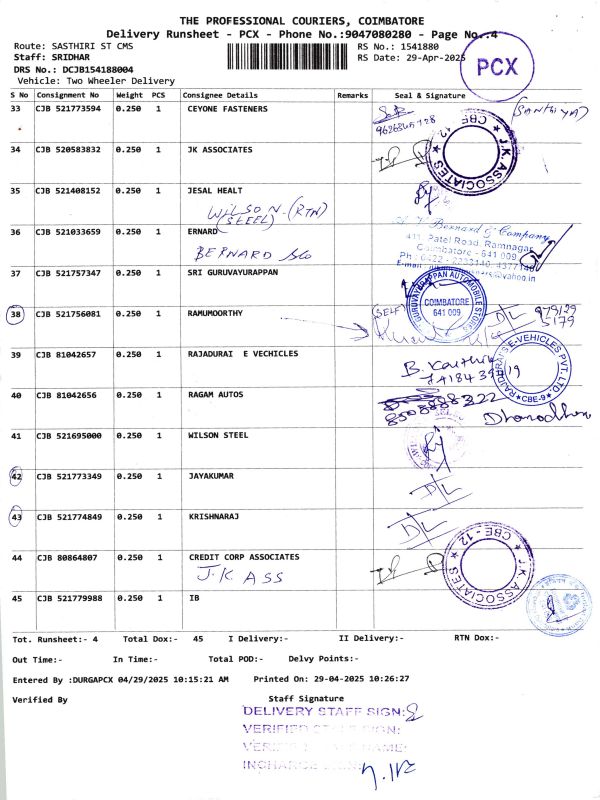 THE PROFESSIONAL COURIERS, COIMBATORE
Delivery Runsheet - PCX - Phone No.:9047080280 - Page No.:4
Route: SASTHIRI ST CMS RS No.: 1541880
Staff: SRIDHAR RS Date: 29-Apr-2025
DRS No.: DCJB154188004
Vehicle: Two Wheeler Delivery
PCX
S No Consignment No Weight PCS Consignee Details Remarks Seal & Signature
33 CJB 521773594 0.250 1 CEYONE FASTENERS
34 CJB 520583832 0.250 1 JK ASSOCIATES
J.K. ASSOCIATES CBE - 12
35 CJB 521408152 0.250 1 JESAL HEALT
WILSON (RTN)
(STEEL)
36 CJB 521033659 0.250 1 ERNARD
BERNARD
Bernard & Company
411, Patel Road, Ramnagar
Coimbatore - 641 009
37 CJB 521757347 0.250 1 SRI GURUVAYURAPPAN
GURUVAYURAPPAN AUTOMOBILE STORES
COIMBATORE
641 009
38 CJB 521756081 0.250 1 RAMUMOORTHY
(SELF) D/L
39 CJB 81042657 0.250 1 RAJADURAI E VECHICLES
RAJDURAI'S E-VEHICLES PVT. LTD. CBE-9
40 CJB 81042656 0.250 1 RAGAM AUTOS
41 CJB 521695000 0.250 1 WILSON STEEL
42 CJB 521773349 0.250 1 JAYAKUMAR D/L
43 CJB 521774849 0.250 1 KRISHNARAJ D/L
44 CJB 80864807 0.250 1 CREDIT CORP ASSOCIATES
J.K ASS
J.K. ASSOCIATES CBE - 12
45 CJB 521779988 0.250 1 IB
Tot. Runsheet:- 4 Total Dox:- 45 I Delivery:- II Delivery:- RTN Dox:-
Out Time:- In Time:- Total POD:- Delvy Points:-
Entered By :DURGAPCX 04/29/2025 10:15:21 AM Printed On: 29-04-2025 10:26:27
Verified By Staff Signature
DELIVERY STAFF SIGN:
VERIFIED STAFF SIGN: